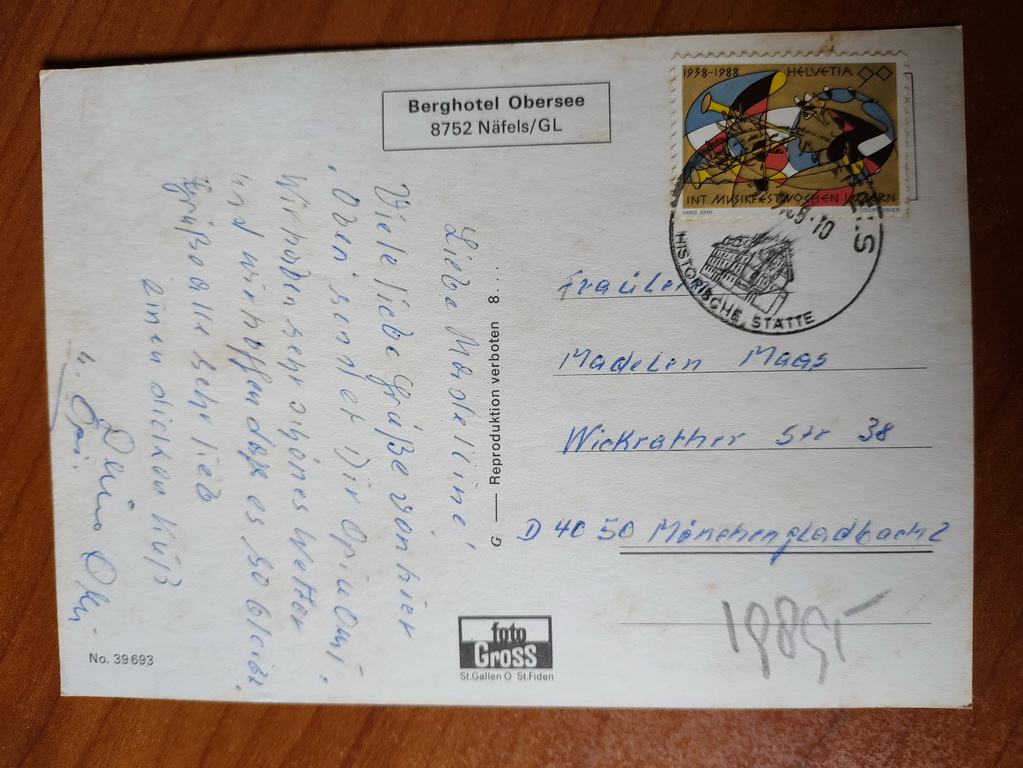 Berghotel Obersee
8752 Näfels/GL
1938-1988 HELVETIA
INT. MUSIKFESTWOCHEN LUZERN
HANS ERNI COURVOISIER
HISTORISCHE STÄTTE
Liebe Madeleine!
Viele liebe Grüße von hier
Oben sendet Dir Opi u Omi.
Wir haben sehr schönes Wetter
und wir hoffen dass es so bleibt.
Grüß alle sehr lieb
einen dicken Kuß
Deine Omi
u. Opi.
G — Reproduktion verboten 8...
Madelen Maas
Wickrather Str 38
D 4050 Mönchengladbach 2
foto
Gross
St.Gallen O St.Fiden
No. 39693